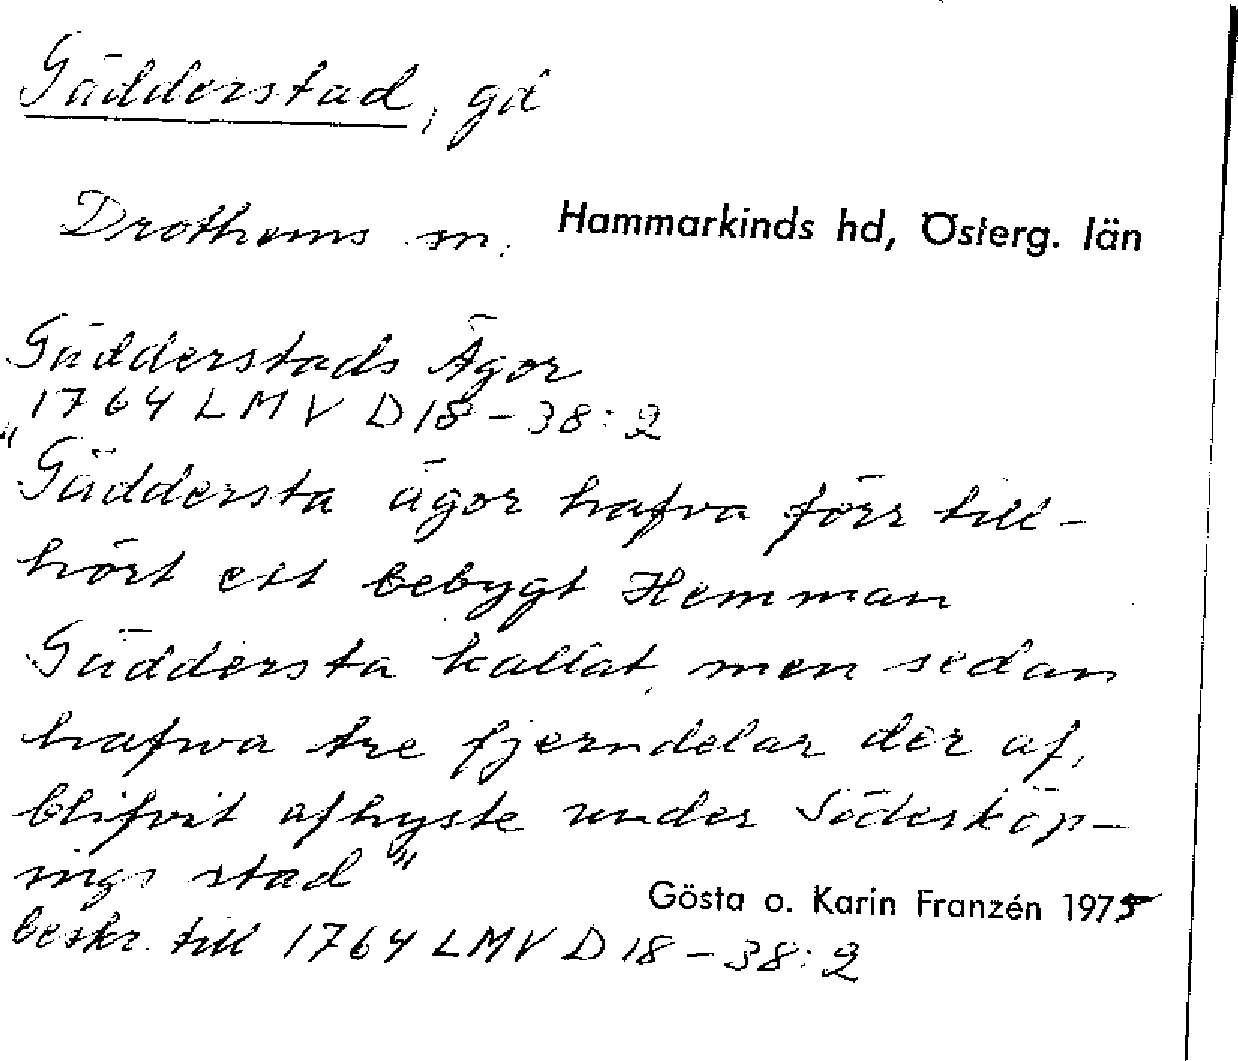 Gädderstad, gd
Drothems sn. Hammarkinds hd, Österg. län
Gädderstads Ägor
1764 LMV D18-38:2
"Gäddersta ägor hafva förr till-
hört ett bebygt Hemman
Gäddersta kallat, men sedan
hafwa tre fjerndelar der af,
blifvit afhyste under Söderköp-
ings stad"
Gösta o. Karin Franzén 1975
beskr. till 1764 LMV D18-38:2